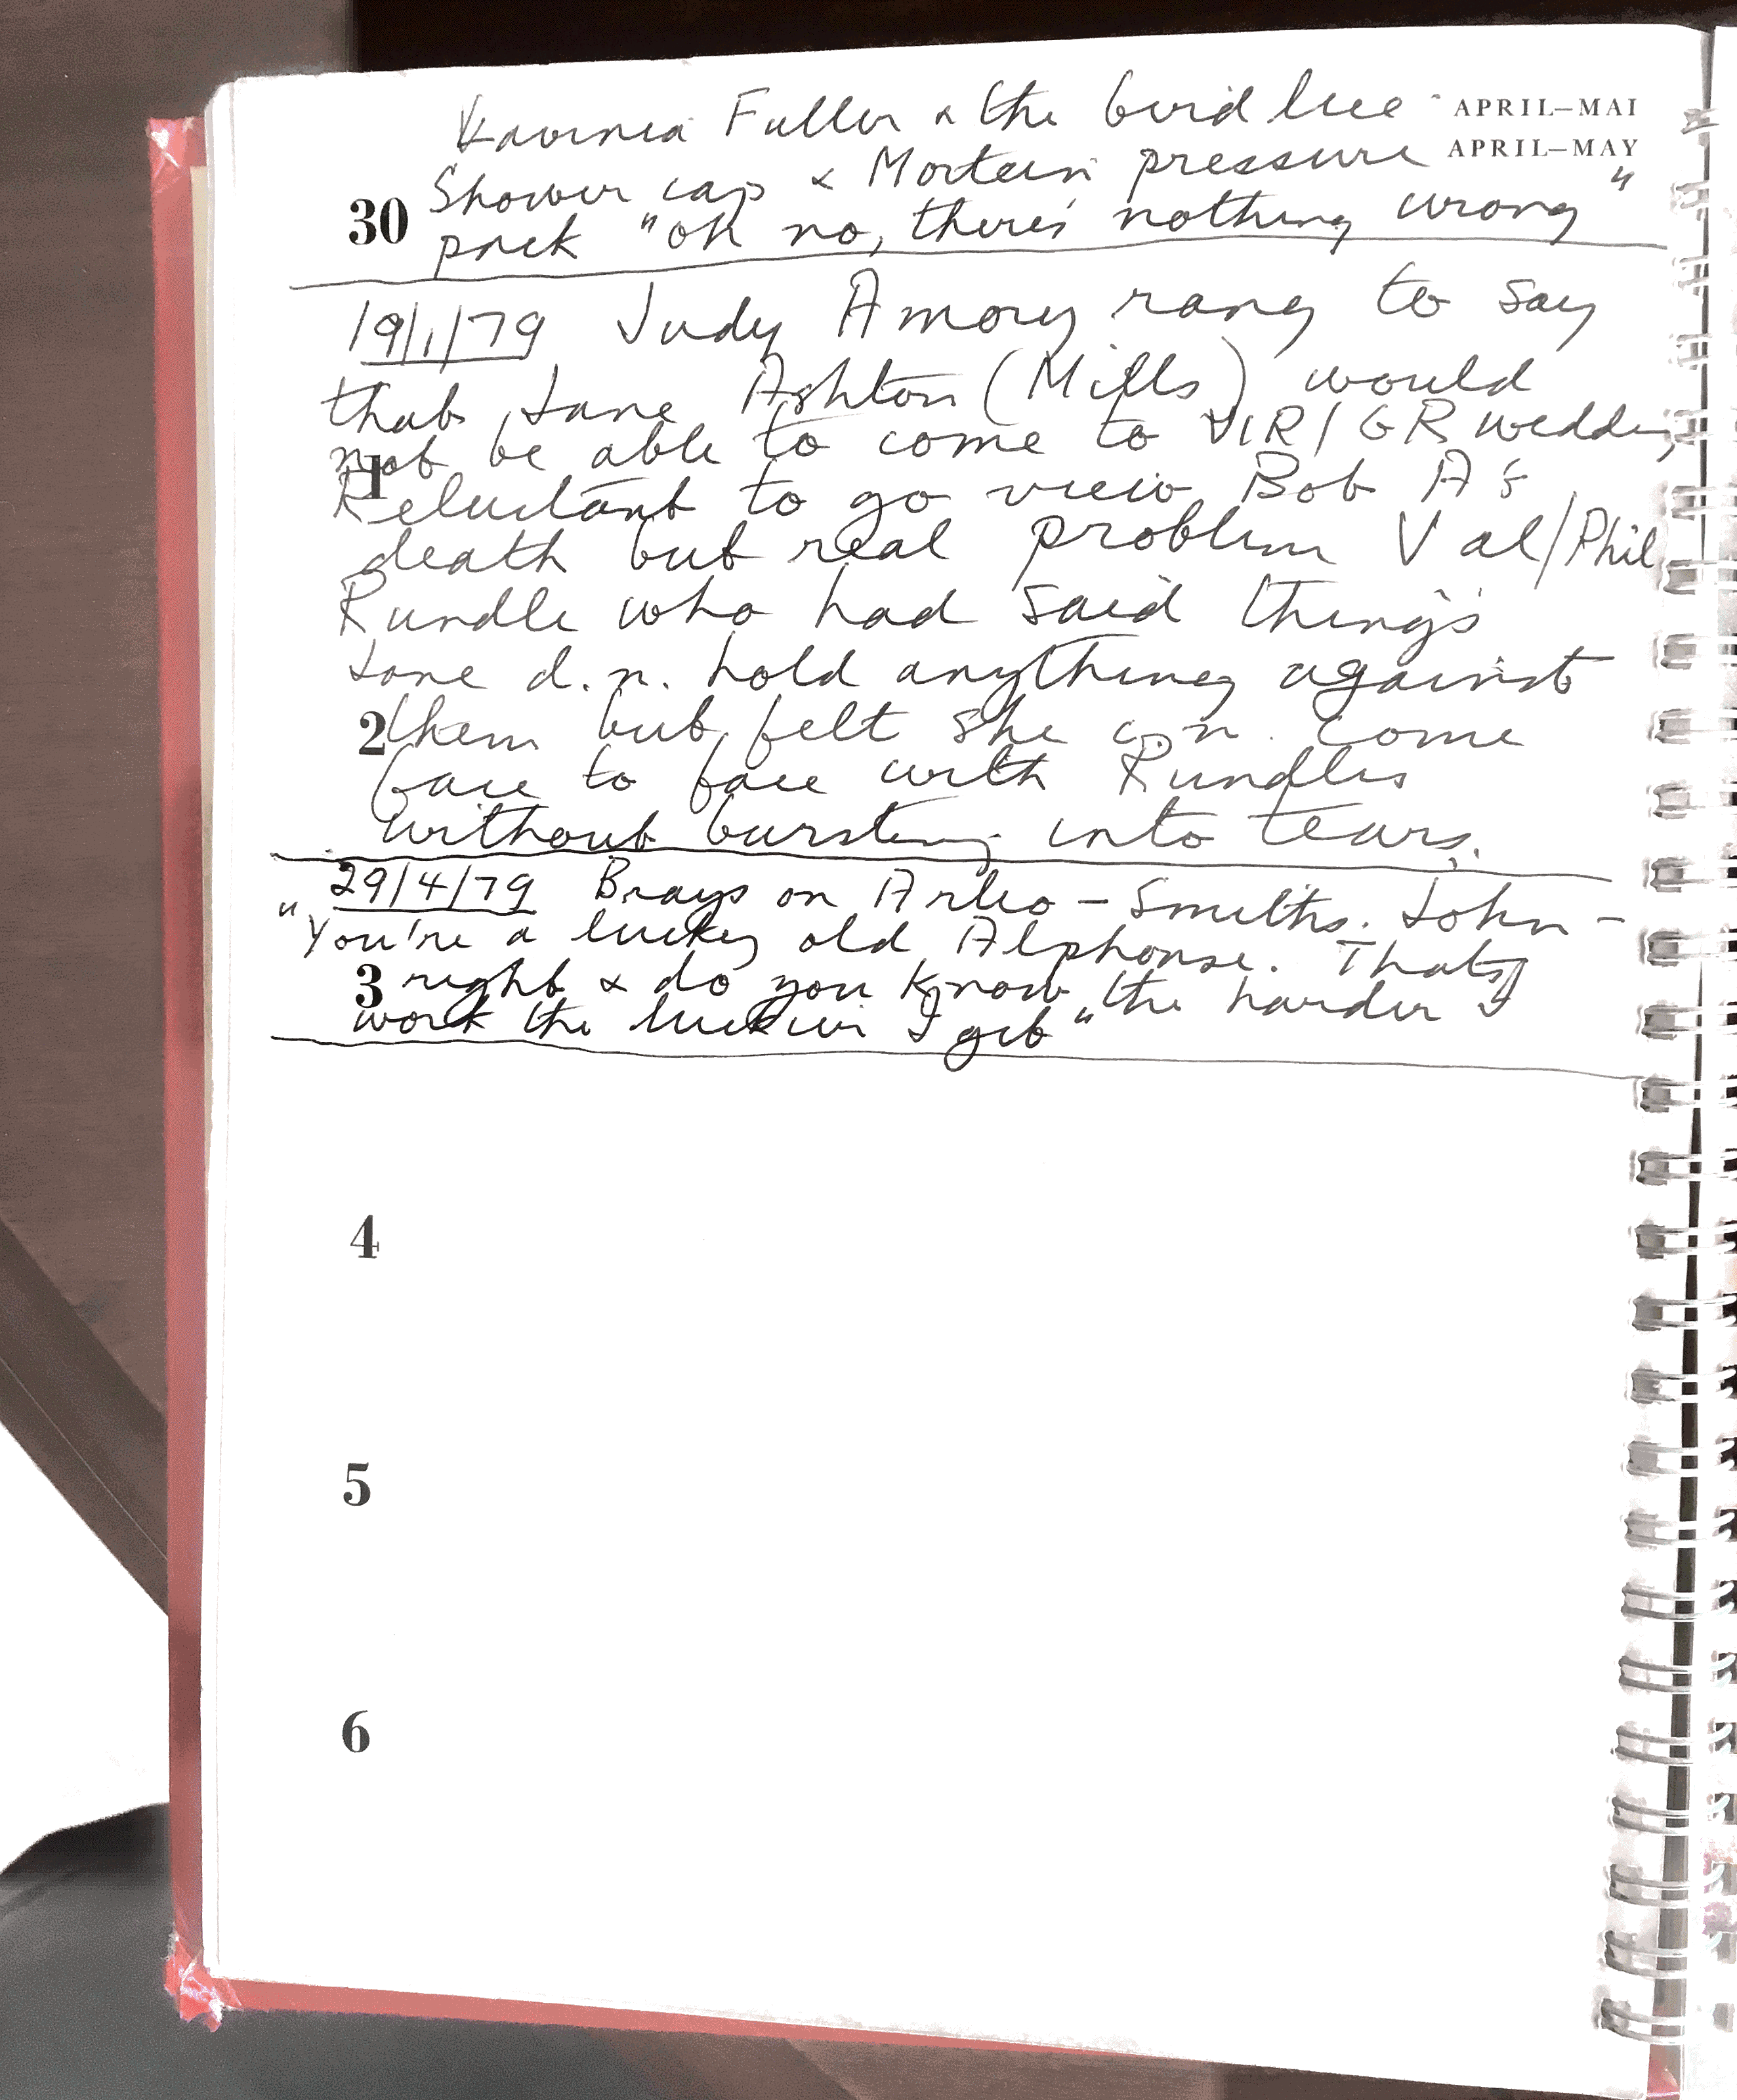 Lavinia Fuller & the bird lice
APRIL–MAI
Shower cap & Mortein pressure
APRIL–MAY
30
pack "oh no, there's nothing wrong"
19/1/79 Judy Amory rang to say
that Jane Ashton (Mills) would
not be able to come to VIR/GR wedding
1
Reluctant to go view Bob A's
death but real problem Val/Phil
Rundle who had said things
Jane d.n. hold anything against
2
them but felt she c.n. come
face to face with Rundles
without bursting into tears.
29/4/79 Brays on - Smiths. John -
"You're a lucky old Alphonse. Thats
3
right & do you know the harder I
work the luckier I get"
4
5
6